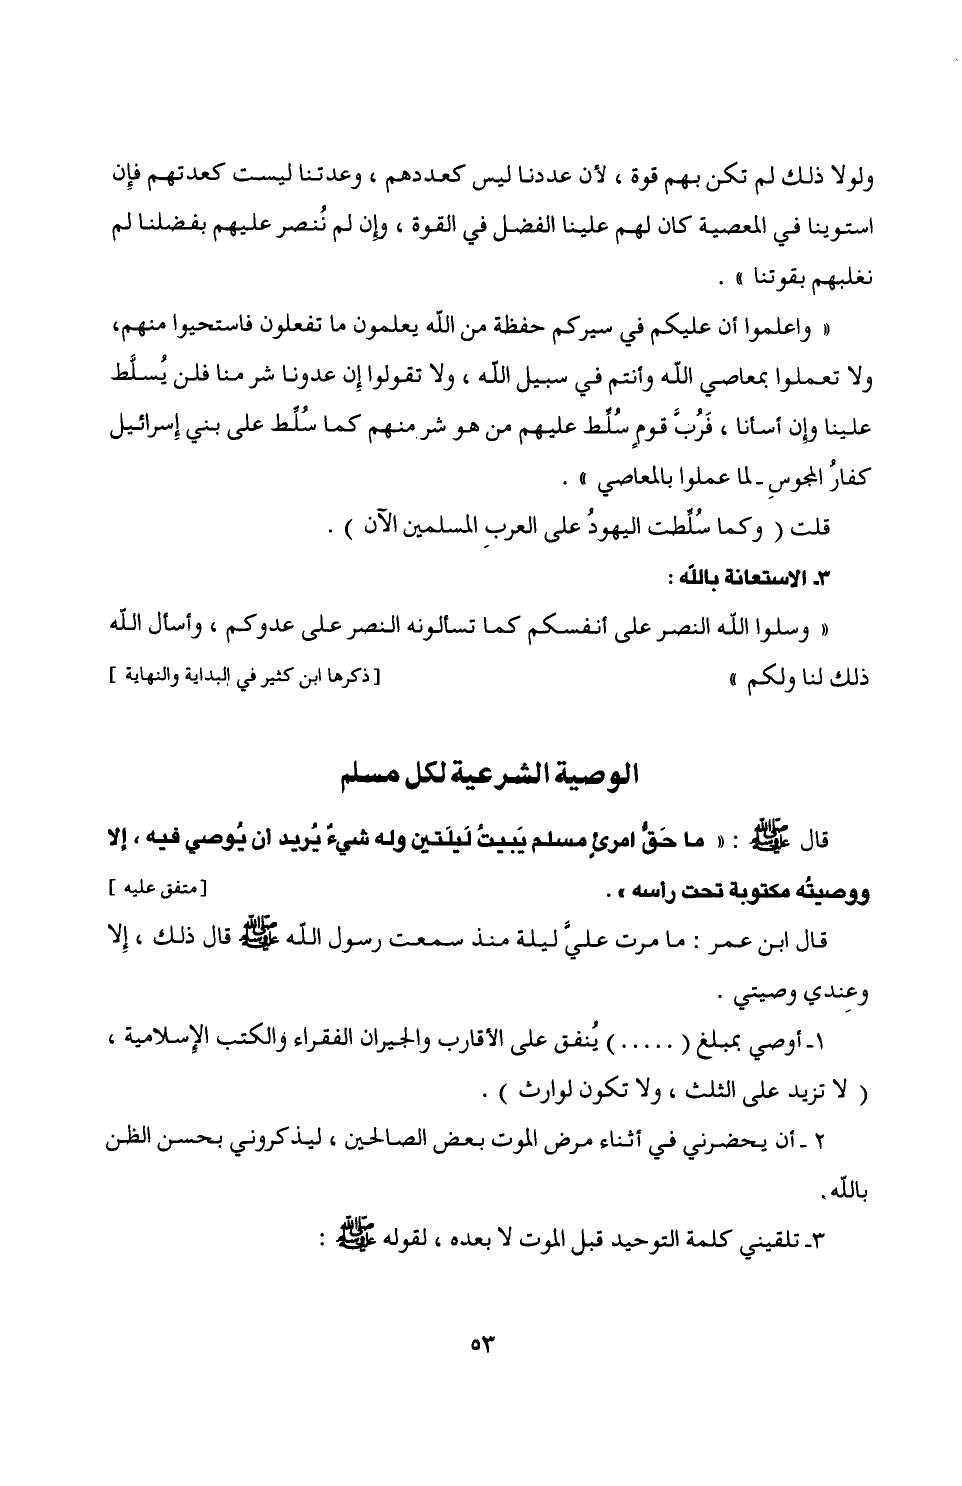 ولولا ذلك لم تكن بهم قوة ، لأن عددنا ليس كعددهم ، وعدتنا ليست كعدتهم فإن
استوينا في المعصية كان لهم علينا الفضل في القوة ، وإن لم نُنصر عليهم بفضلنا لم
نغلبهم بقوتنا » .
« واعلموا أن عليكم في سيركم حفظة من الله يعلمون ما تفعلون فاستحيوا منهم،
ولا تعملوا بمعاصي الله وأنتم في سبيل الله ، ولا تقولوا إن عدونا شر منا فلن يُسلَّط
علينا وإن أسأنا ، فَرُبَّ قومٍ سُلِّط عليهم من هو شر منهم كما سُلِّط على بني إسرائيل
كفارُ المجوسِ ـ لما عملوا بالمعاصي » .
قلت ( وكما سُلِّطت اليهودُ على العربِ المسلمين الآن ) .
٣ـ الاستعانة بالله :
« وسلوا الله النصر على أنفسكم كما تسألونه النصر على عدوكم ، وأسأل الله
ذلك لنا ولكم » [ ذكرها ابن كثير في البداية والنهاية ]
الوصية الشرعية لكل مسلم
قال ﷺ : « ما حَقُّ امرئٍ مسلم يَبيتُ لَيلَتين وله شيءُ يُريد أن يُوصي فيه ، إلا
ووصيتُه مكتوبة تحت رأسه » . [ متفق عليه ]
قال ابن عمر : ما مرت عليَّ ليلة منذ سمعت رسول الله ﷺ قال ذلك ، إلا
وعِندي وصيتي .
١ـ أوصي بمبلغ ( ..... ) يُنفق على الأقارب والجيران الفقراء والكتب الإسلامية ،
( لا تزيد على الثلث ، ولا تكون لوارث ) .
٢ ـ أن يحضرني في أثناء مرض الموت بعض الصالحين ، ليذكروني بحسن الظن
بالله .
٣ـ تلقيني كلمة التوحيد قبل الموت لا بعده ، لقوله ﷺ :
٥٣